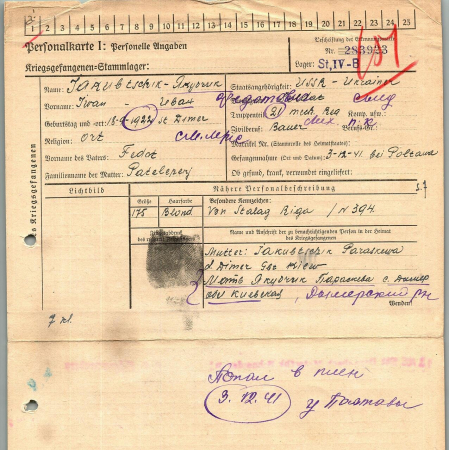 1 2 3 4 5 6 7 8 9 10 11 12 13 14 15 16 17 18 19 20 21 22 23 24 25
Personalkarte I: Personelle Angaben
Kriegsgefangenen-Stammlager:
Beschriftung der Erkennungsmarke
Nr. 283933
Lager: St, IV-B
Name: Jakubtschik - Якубчик
Vorname: Iwan Иван
Geburtstag und -ort: St Dimer
Religion: ort
Vorname des Vaters: Fedot
Familienname der Mutter:
Staatsangehörigkeit: USSR - Ukrainer
Dienstgrad: Soldat
Truppenteil: 21 mech. Reg Komp. usw.:
Zivilberuf: Bauer Berufs-Gr.:
Matrikel Nr. (Stammrolle des Heimatstaates):
Gefangennahme (Ort und Datum): 3-12-41 bei Poltawa
Ob gesund, krank, verwundet eingeliefert:
des Kriegsgefangenen
Lichtbild
Nähere Personalbeschreibung
Größe Haarfarbe Besondere Kennzeichen:
175 Blond Von Stalag Riga / N 394
Fingerabdruck
Name und Anschrift der zu benachrichtigenden Person in der Heimat
des Kriegsgefangenen
Mutter: Jakubtschik Paraskewa
Dimer Geb. Kiew
Мать Якубчик Параскева с. Дымер
обл Киевская, Дымерский р-н
Wenden!
7 кл.
Попал в плен
3.12.41 у Полтавы